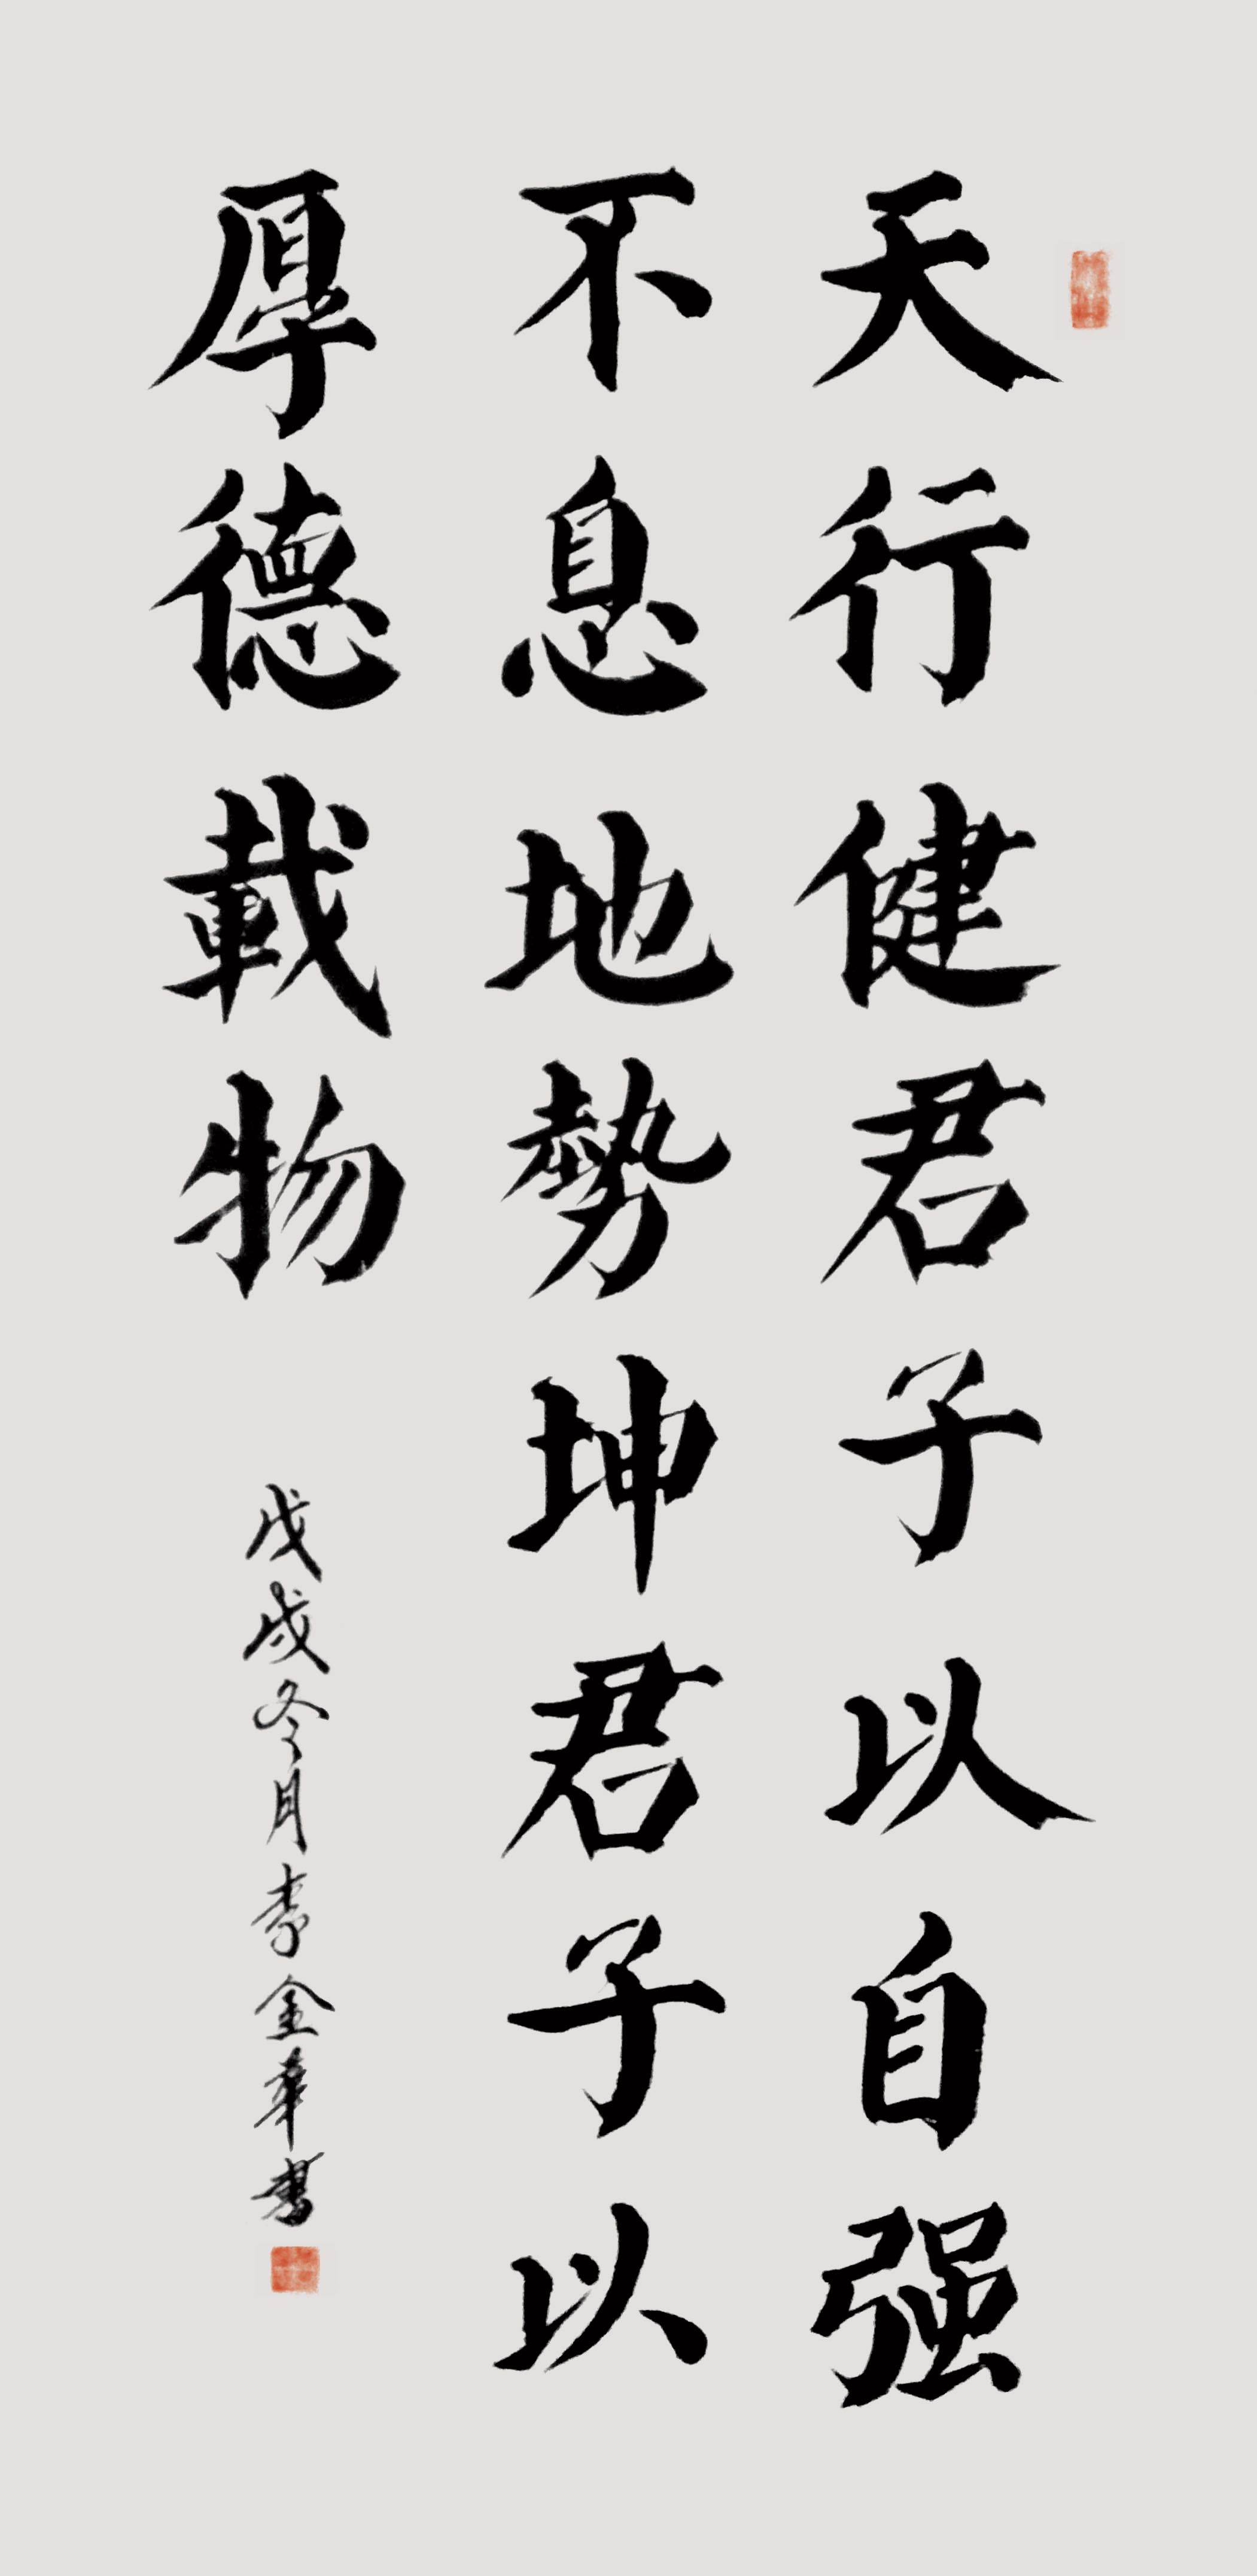 天行健君子以自强
不息地勢坤君子以
厚德載物
戊戌冬月李金華書